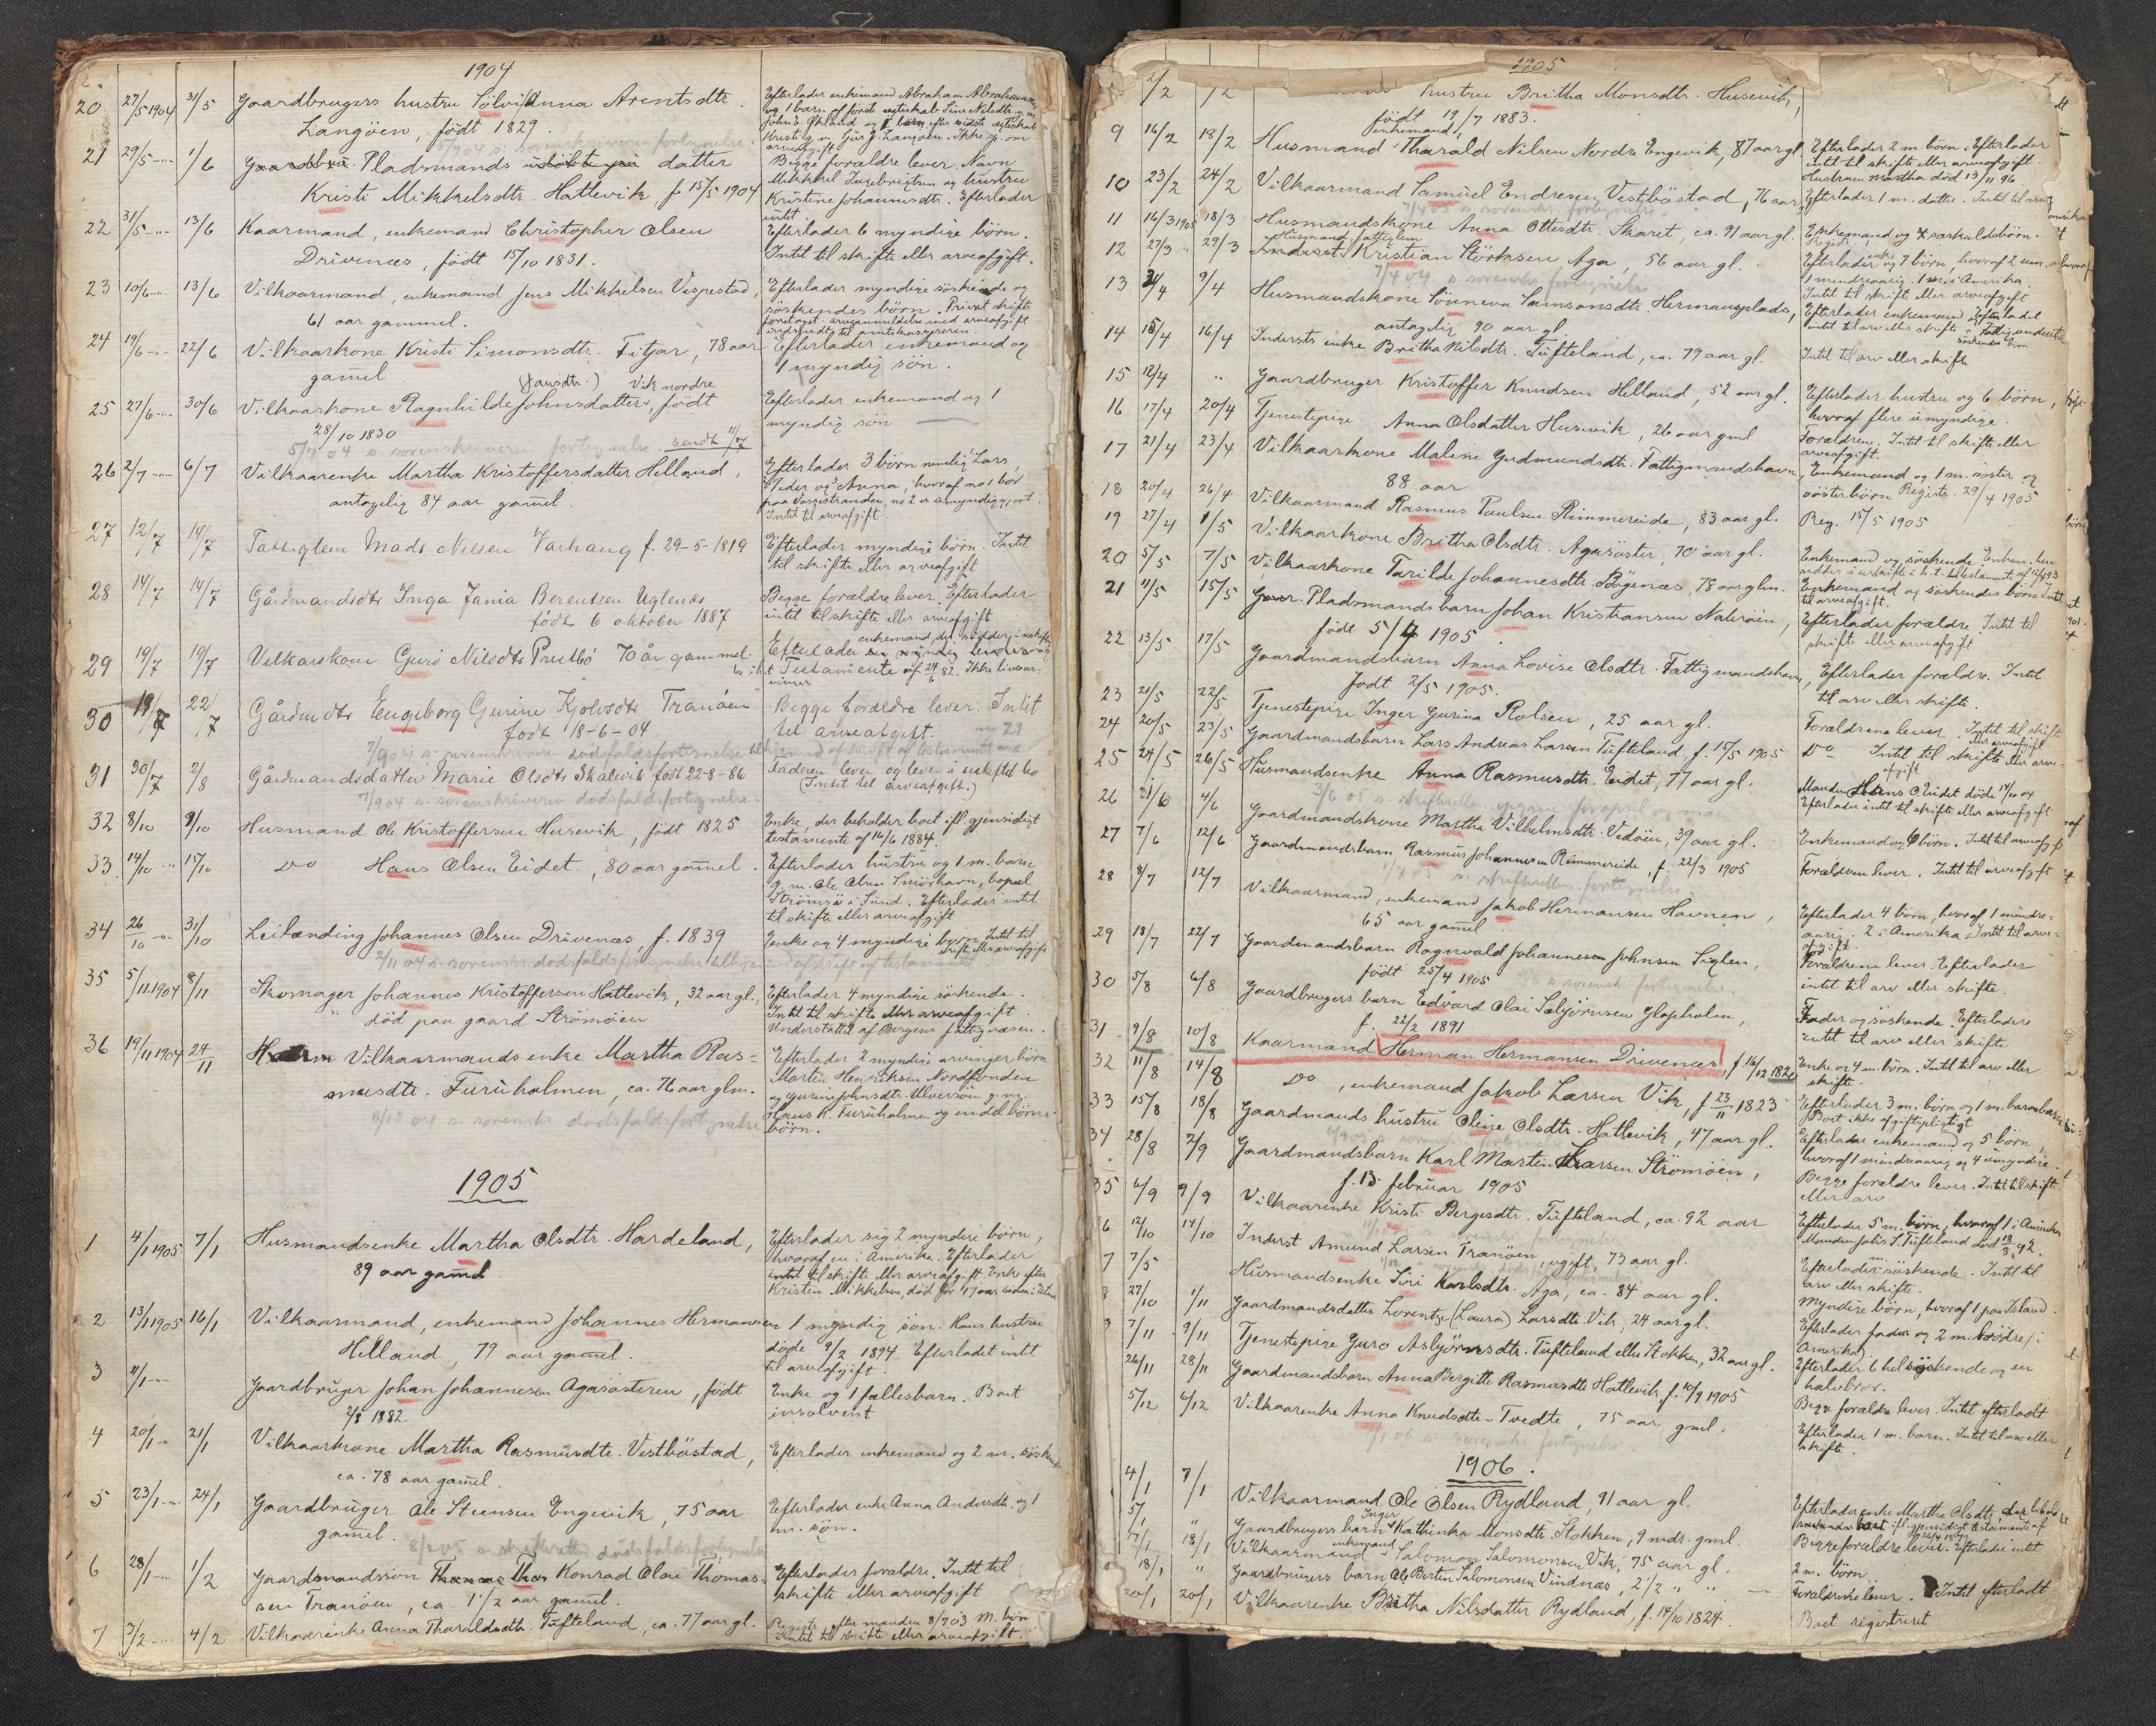 1904
20 27/5 1904 31/5 Gaardbrugers hustru Sölvi Anna Arentsdtr. Efterlader enkemand Abraham Abrahamsen
Langöen, født 1829.
21 29/5 -"- 1/6 Pladsmands datter Begge forældre lever. Navn
Kristi Mikkelsdtr. Hattevik, f. 15/5 1904 Mikkel Ingebrigtsen og hustru
Kristine Johannesdtr. Efterlader
intet.
22 31/5 -"- 13/6 Kaarmand, enkemand Christopher Olsen Efterlader 6 myndige börn.
Drivenæs, født 15/10 1831. Intet til skifte eller arveafgift.
23 10/6 -"- 13/6 Vilkaarmand, enkemand Jens Mikkelsen Vespestad, Efterlader myndige söskende og
61 aar gammel. söskendes börn. Privat skifte
foretaget.
24 19/6 -"- 22/6 Vilkaarkone Kristi Simonsdtr. Fitjar, 78 aar Efterlader enkemand og
gam̄el 1 myndig sön.
25 27/6 -"- 30/6 Vilkaarkone Ragnhilde Johnsdatter, (Jansdtr.) Vik nordre født Efterlader enkemand og 1
28/10 1830 myndig sön
5/7 04 s. sorenskriveren fortegnelse sendt 11/7
26 2/7 -"- 6/7 Vilkaarenke Martha Kristoffersdatter Helland, Efterlader 3 börn nemlig Lars,
antagelig 84 aar gam̄el. Peder og Anna, hvoraf no 1 bor
paa Vossestranden, no 2 er
Intet til arveafgift
27 12/7 14/7 Fattiglem Mads Nilsen Varhaug f. 29-5-1819 Efterlader myndige börn. Intet
til skifte eller arveafgift
28 14/7 14/7 Gårdmandsdtr Inga Jania Berentsen Uglenes Begge forældre lever. Efterlader
født 6 oktober 1887 intet til skifte eller arveafgift
29 19/7 19/7 Velkaarkone Guro Nilsdtr Prestbö 70 år gammel Efterlader enkemand, der sidder i uskiftet
bo i h.t. Testamente af 24/6 82.
30 19/7 22/7 Gårdmdtr Engeborg Gurine Kjolvsdtr Tranöen Begge forældre lever. Intet
født 18-6-04 til arveafgift.
31 30/7 2/8 Gårdmandsdatter Marie Olsdtr Skalevik født 22-8-86 Faderen lever og lever i uskiftet bo
7/9 04 s. sorenskriveren dödsfaldsfortegnelse (Intet til arveafgift.)
32 8/10 9/10 Husmand Ole Kristoffersen Husevik, født 1825 Enke, der beholder boet ifl. gjensidigt
testamente af 16/6 1884.
33. 14/10 -"- 15/10 Do Hans Olsen Eidet, 80 aar gam̄el. Efterlader hustru og 1 m. barn
g. m. Ole Olsen Smörhavn, bopæl
Strömsö i Sund. Efterlader intet
til skifte eller arveafgift
34 26/10 -"- 31/10 Leilænding Johannes Olsen Drivenæs, f. 1839 Enke og 4 myndige börn. Intet til
skifte eller arveafgift
35 5/11 1904 8/11 Skomager Johannes Kristoffersen Hattevik, 32 aar gl., Efterlader 4 myndige söskende.
död paa gaard Strömöen Intet til skifte eller arveafgift.
Understöttet af Bergens fattigvæsen.
36 19/11 1904 24/11 Vilkaarmands enke Martha Ras- Efterlader 2 myndige arvinger börn
musdtr. Furuholmen, ca. 76 aar glm. Martin Henriksen Nordfonden
og Gurine Johnsdtr. Ulversöen g.m.
Hans R. Furuholmen og en del börne-
8/12 04 s. sorenskr. dödsfaldsfortegnelse börn.
1905
1 4/1 1905 7/1 Husmandsenke Martha Olsdtr. Hardeland, Efterlader sig 2 myndige börn,
89 aar gam̄el. hvoraf en i Amerika. Efterlader
intet til skifte eller arveafgift. Enke efter
Kristen Mikkelsen, död for 17 aar siden i Etne
2 13/1 1905 16/1 Vilkaarmand, enkemand Johannes Hermansen 1 myndig sön. Hans hustru
Helland, 79 aar gam̄el. döde 9/2 1894. Efterladt intet
til arveafgift.
3 11/1 -"- Gaardbruger Johan Johannesen Agasösteren, født Enke og 1 fællesbarn. Boet
2/8 1882 insolvent
4 20/1 -"- 21/1 Vilkaarkone Martha Rasmusdtr. Vestböstad, Efterlader enkemand og 2 m. söskende
ca. 78 aar gam̄el.
5 23/1 -"- 24/1 Gaardbruger Ole Steensen Engevik, 75 aar Efterlader enke Anna Andersdtr. og 1
gam̄el. m. sön.
6 28/1 -"- 1/2 Gaardmandssön Konrad Olai Thomas- Efterlader forældre. Intet til
sen Tranöen, ca. 1 1/2 aar gam̄el. skifte eller arveafgift
7 3/2 -"- 4/2 Vilkaarenke Anna Tharaldsdtr. Tufteland, ca. 77 aar gl. Registr. efter manden 8/7 03 M. börn
Intet til skifte eller arveafgift.
1905
hustru Britha Monsdtr. Husevik,
født 19/7 1883.
9 16/2 18/2 Husmand enkemand, Tharald Nilsen Nordre Engevik, 87 aar gl. Efterlader 2 m. börn. Efterlader
intet til skifte eller arveafgift.
Hustruen Martha död 13/11 96
10 23/2 24/2 Vilkaarmand Samuel Endresen Vestböstad, 76 aar Efterlader 1 m. datter. Intet til arv
11 16/3 1905 18/3 Husmandskone Anna Ottesdtr. Skaret, ca. 91 aar gl. Enkemand og særkuldsbörn.
12 27/3 " 29/3 Husmand, fattiglem Kristian Störksen Aga 56 aar gl. Efterlader enke og 7 börn, hvoraf 2 um.
1 mindreaarig. 1 m. i Amerika.
Intet til skifte eller arveafgift
13 3/4 9/4 Husmandskone Sönneva Samsonsdtr. Hermansplads, Efterlader enkemand. Efterladt
antagelig 90 aar gl. intet til arv eller skifte
14 15/4 16/4 Indersts enke Britha Nilsdtr. Tufteland, ca. 79 aar gl. Intet til arv eller skifte
15 12/4 " Gaardbruger Kristoffer Knudsen Helland, 52 aar gl. Efterlader hustru og 6 börn,
hvoraf flere umyndige.
16 17/4 20/4 Tjenestepige Anna Olsdatter Husevik, 26 aar gml Forældrene. Intet til skifte eller
arveafgift.
17 21/4 23/4 Vilkaarkone Malene Gudmundsdtr. Fattigmandshavn, Enkemand og 1 m. söster og
88 aar söster börn Registr. 29/4 1905
18 20/4 26/4 Vilkaarmand Rasmus Paulsen Rimmereide, 83 aar gl. Reg. 15/5 1905
19 27/4 1/5 Vilkaarkone Britha Olsdtr. Agasöster, 70 aar gl. Enkemand og söskende
20 5/5 7/5 Vilkaarkone Tarilde Johannesdtr. Bögenæs, 78 aar glm. Enkemand og söskendes börn Intet
til arveafgift.
21 11/5 15/5 Pladsmandsbarn Johan Kristiansen Naleröen, Efterlader forældre. Intet til
født 5/4 1905 skifte eller arveafgift
22 13/5 17/5 Gaardmandsbarn Anna Lovise Olsdtr. Fattigmandshavn, Efterlader forældre. Intet
født 2/5 1905. til arv eller skifte.
23 21/5 22/5 Tjenestepige Inger Gurina Rolsen, 25 aar gl. Forældrene lever. Intet til skifte
eller arveafgift
24 20/5 23/5 Gaardmandsbarn Lars Andreas Larsen Tufteland f. 15/5 1905 Do Intet til skifte eller arve-
afgift
25 24/5 26/5 Husmandsenke Anna Rasmusdtr. Eidet, 77 aar gl. Manden Hans O. Eidet döde 14/10 04
Efterlader intet til skifte eller arveafgift
26 1/6 4/6 Gaardmandskone Martha Vilhelmsdtr. Vedöen, 39 aar gl. Enkemand og 6 börn. Intet til arveafgift
27 7/6 12/6 Gaardmandsbarn Rasmus Johannesen Rimmereide, f. 22/3 1905 Forældrene lever. Intet til arveafgift
28 8/7 12/7 Vilkaarmand, enkemand Jakob Hermansen Havnen, Efterlader 4 börn, hvoraf 1 mindre-
65 aar gam̄el aarig. 2 i Amerika. Intet til arve-
afgift.
29 18/7 22/7 Gaardmandsbarn Ragnvald Johannesen Johnsen Siglen, Forældrene lever. Efterlader
født 25/4 1905 intet til arv eller skifte.
30 5/8 6/8 Gaardbrugers barn Edvard Olai Sæbjörnsen Glopholm, Fader og söskende. Efterladere
f. 22/2 1891 intet til arv eller skifte
31 9/8 10/8 Kaarmand Herman Hermansen Drivenæs, f 16/12 1820 Enke og 4 m. börn. Intet til arv eller
skifte.
32 11/8 14/8 Do, enkemand Jakob Larsen Vik, f. 23/11 1823 Efterlader 3 m. börn og 1 m. barnebarn
Boet ikke afgiftspligtigt
33 15/8 18/8 Gaardmands hustru Oline Olsdtr. Hattevik, 47 aar gl. Efterlader enkemand og 5 börn,
hvoraf 1 mindreaarig og 4 umyndige.
34 28/8 2/9 Gaardmandsbarn Karl Martin Larsen Strömöen, Begge forældre lever. Intet til skifte
f. 13. februar 1905 eller arv.
35 6/9 9/9 Vilkaarenke Kristi Bergesdtr. Tufteland, ca. 92 aar Efterlader 5 m. börn, hvoraf 1 i Amerika
Manden Johs S. Tufteland död 18/3 92.
6 12/10 14/10 Inderst Amund Larsen Tranöen, ugift, 73 aar gl. Efterlader m. söskende. Intet til
arv eller skifte.
7 7/5 Husmandsenke Siri Karlsdtr. Aga, ca. 84 aar gl. Myndige börn, hvoraf 1 paa Island.
27/10 1/11 Gaardmandsdatter Lorentze (Laura) Larsdtr. Vik, 24 aar gl. Efterlader fader og 2 m. brödre i
Amerika
7/11 9/11 Tjenestepige Guro Asbjörnsdtr. Tufteland eller Stokken, 32 aar gl. Efterlader 6 helsöskende og en
halvbror.
26/11 28/11 Gaardmandsbarn Anna Bergitte Rasmusdtr. Hattevik f. 10/9 1905 Begge forældre lever. Intet efterladt
5/12 6/12 Vilkaarenke Anna Knudsdtr. Tvedte, 75 aar gml. Efterlader 1 m. barn. Intet til arv eller
skifte.
1906.
4/1 7/1 Vilkaarmand Ole Olsen Rydland, 91 aar gl. Efterlader enke Martha Olsdtr, der beholder
boet ifl. gjensidigt testamente af
5/1 " Gaardbrugers barn Inger Kathinka Monsdtr. Stokken, 9 mdr. gml. Begge forældre lever. Efterlader intet
17/1 18/1 Vilkaarmand enkemand Salomon Salomonsen Vik, 75 aar gl. 2 m. börn
18/1 " Gaardbrugers barn Ole Bertin Salomonsen Vindnæs, 2 1/2 " " Forældrene lever. Intet efterladt
20/1 20/1 Vilkaarenke Britha Nilsdatter Rydland, f. 14/10 1824. Boet registreret